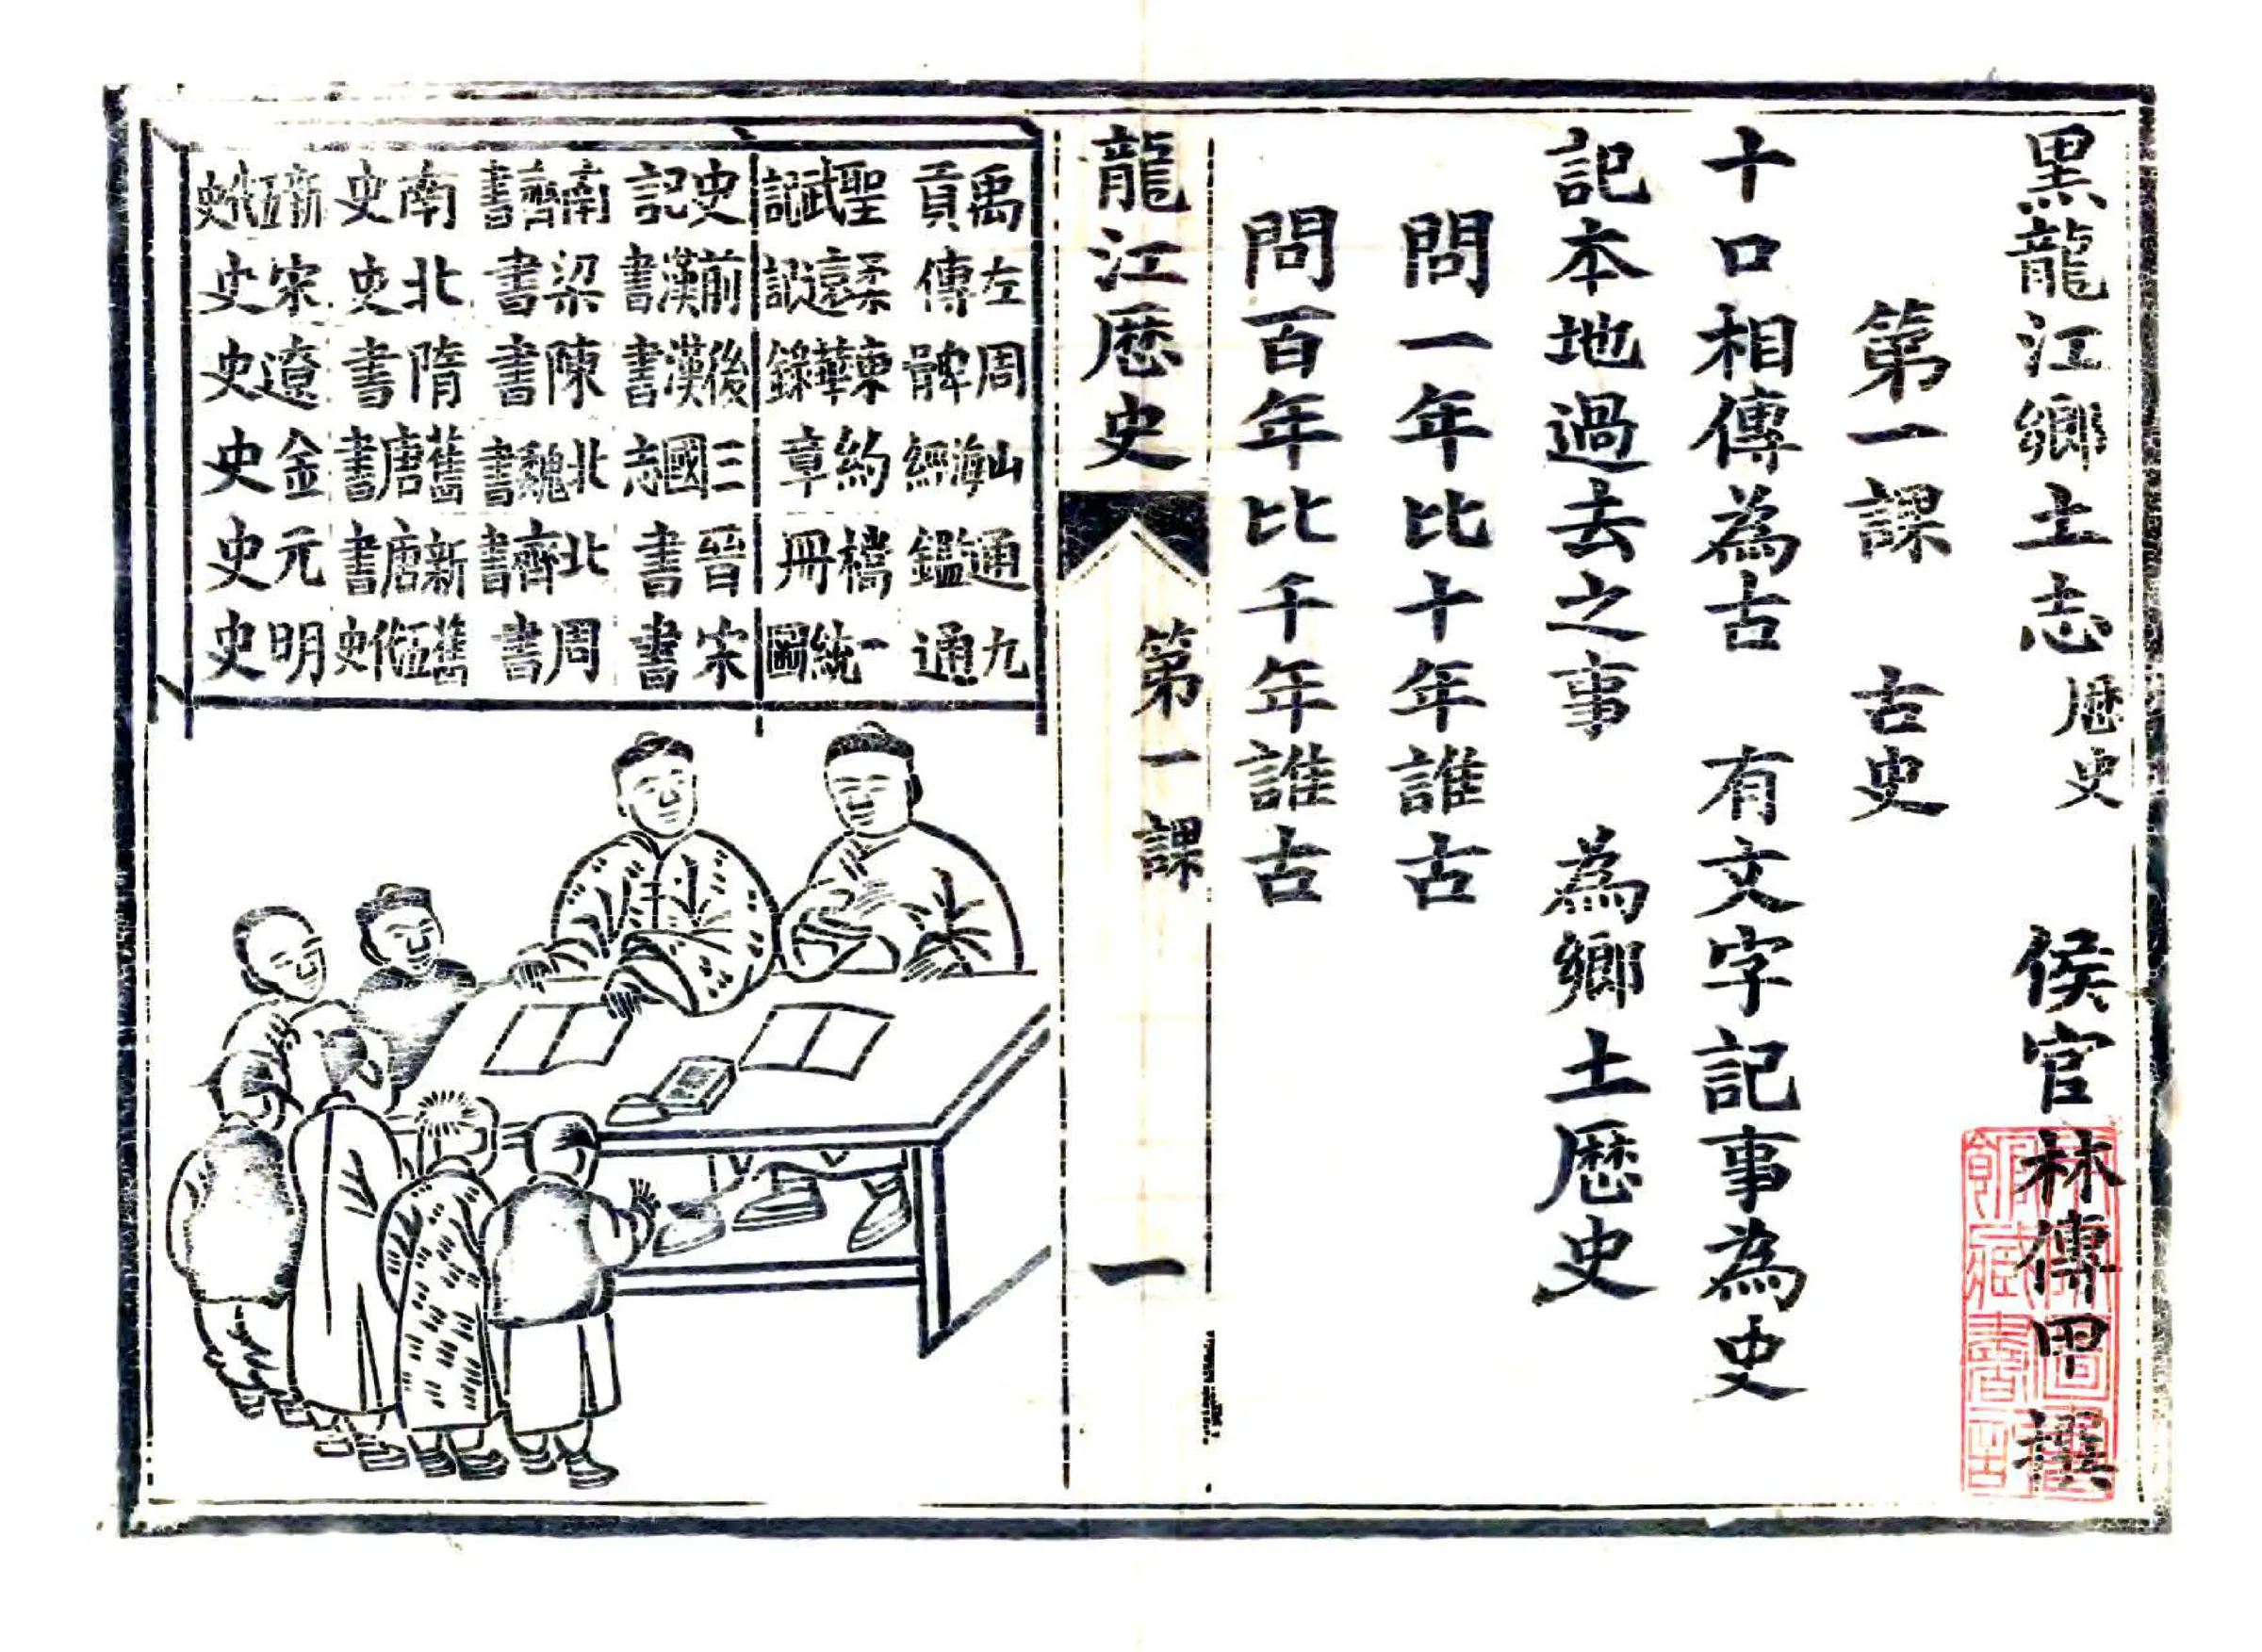 黑龍江鄉土志厯史　侯官林傳甲撰
第一課　古史
十口相傳為古　有文字記事為史
記本地過去之事　為鄉土厯史
問一年比十年誰古
問百年比千年誰古
龍江厯史　第一課　一
禹貢　左傳　周髀　山海經　通鑑　九通
聖武記　柔遠記　東華錄　約章　檔冊　一統圖
史記　前漢書　後漢書　三國志　晉書　宋書
南齊書　梁書　陳書　北魏書　北齊書　周書
南史　北史　隋書　舊唐書　新唐書　舊五代史
新五代史　宋史　遼史　金史　元史　明史